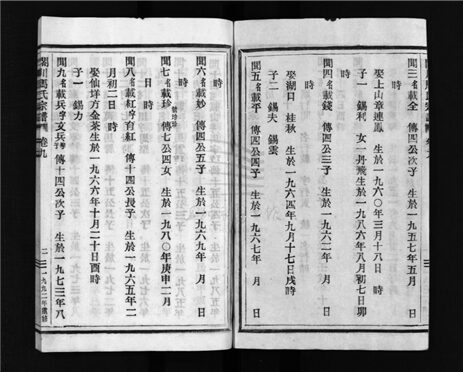 聞三名載全 傳四公次子 生於一九五七年五月 日
時
娶上山章連鳳 生於一九六〇年三月十八日 時
子一 錫利 女一丹飛生於一九八六年八月初七日卯
時
聞四名載錢 傳四公三子 生於一九六二年 月 日
時
娶湖口 桂秋 生於一九六四年九月十七日戌時
子二 錫夫 錫雲
聞五名載平 傳四公四子 生於一九六七年 月 日
時
聞六名載妙 傳四公五子 生於一九六九年 月 日
時
聞七名載珍 傳七公四女 生於一九七〇年庚申二月
日 時
聞八名載紅字育紅 傳十四公長子 生於一九六五年二
月初二日 時
娶仙垟方金茶生於一九六六年十月二十日酉時
子一 錫力
聞九名載兵字文兵 傳十四公次子 生於一九七三年八
馮氏宗譜 卷九
二 一九九二年歲修